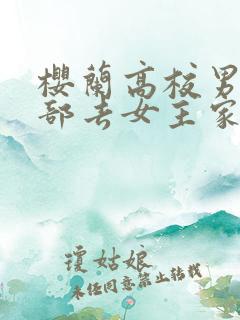 櫻蘭高校男
部去女主家
瓊姑娘
未经同意禁止转载